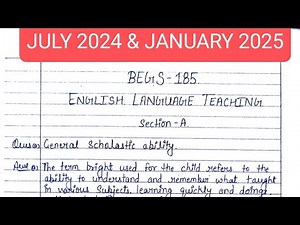 JULY 2024 & JANUARY 2025
BEGS-185.
ENGLISH LANGUAGE TEACHING
Section-A.
General Scholastic ability.
The term bright used for the child refers to the
ability to understand and remember what taught
in various subjects, learning quickly and doing